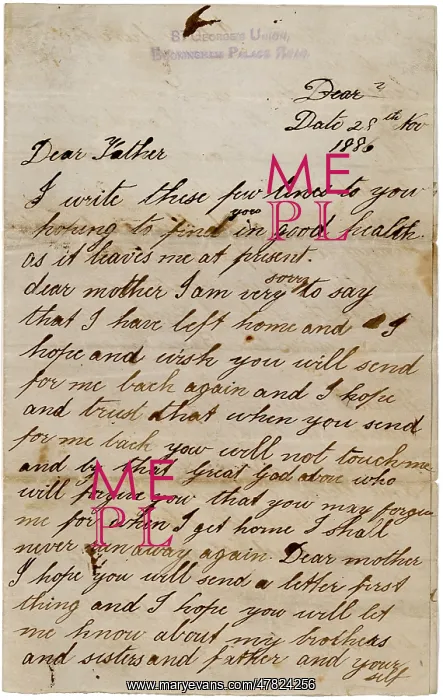 St George's Union,
Buckingham Palace Road.
Dear
Date 28th Nov
1886
Dear Father
I write these few lines to you
hoping to find you in good health
as it leaves me at present.
dear mother I am very sorry to say
that I have left home and I
hope and wish you will send
for me back again and I hope
and trust that when you send
for me back you will not touch me
and by that Great God above who
will forgive you that you may forgive
me for when I get home I shall
never run away again. Dear mother
I hope you will send a letter first
thing and I hope you will let
me know about my brothers
and sisters and father and your
self
ME
PL
ME
PL
www.maryevans.com/47824256